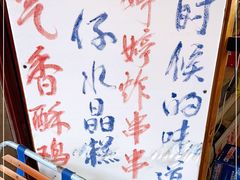 时候的味道
婷婷炸串串
仔水晶糕
气香酥鸡